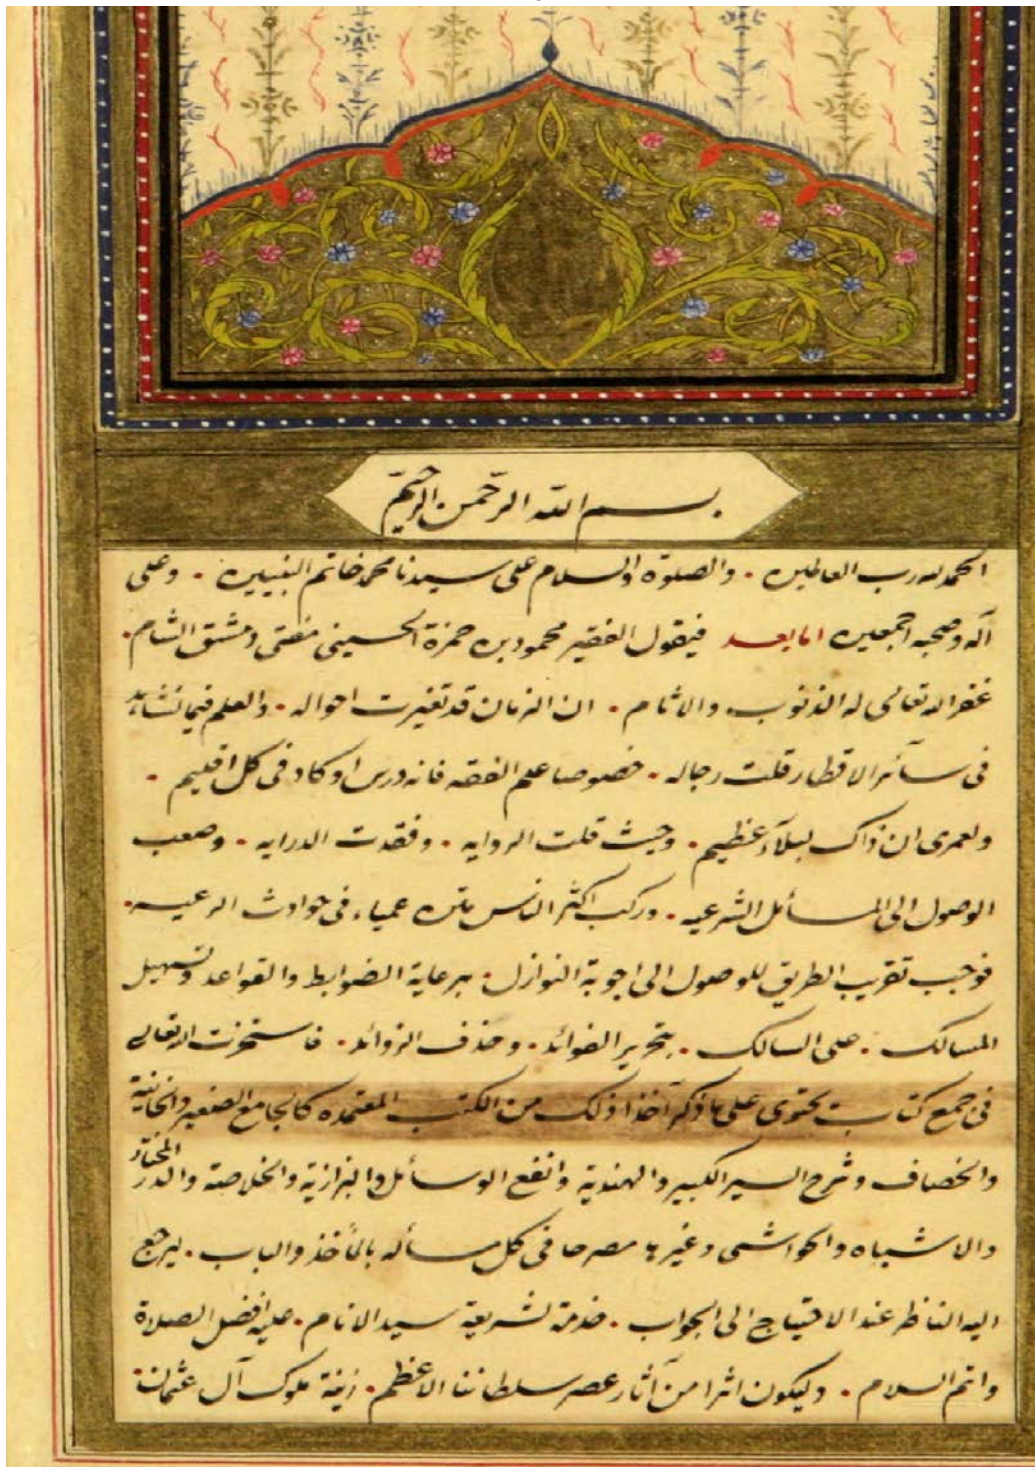 بسم الله الرّحمن الرّحيم
الحمد لله رب العالمين . والصلوة والسلام على سيدنا محمد خاتم النبيين . وعلى
آله وصحبه اجمعين اما بعد فيقول الفقير محمود بن حمزة الحسيني مفتى دمشق الشام .
غفر الله تعالى له الذنوب والاثام . ان الزمان قد تغيرت احواله . والعلم فيما نشاهد
فى سآئر الاقطار قلت رجاله . خصوصا علم الفقه فانه درس او كاد فى كل اقليم .
ولعمرى ان ذاك لبلآء عظيم . وحيث قلت الروايه . وفقدت الدرايه . وصعب
الوصول الى المسائل الشرعيه . وركب اكثر الناس متن عمياء فى حوادث الرعيه .
فوجب تقريب الطريق للوصول الى اجوبة النوازل . برعاية الضوابط والقواعد وتسهيل
المسالك . على السالك . بتحرير الفوائد . وحذف الزوائد . فاستخرت الله تعالى
فى جمع كتاب يحتوى على ما ذكر آخذا ذلك من الكتب المعتمده كالجامع الصغير والخانية
والخصاف وشرح السير الكبير والهندية وانفع الوسائل والبزازية والخلاصة والدر المختار
والاشباه والحواشى وغيرها مصرحا فى كل مسأله بالمأخذ والباب . ليرجع
اليه الناظر عند الاحتياج الى الجواب . خدمة لشريعة سيد الانام . عليه افضل الصلاة
واتم السلام . وليكون اثرا من آثار عصر سلطاننا الاعظم . زينة ملوك آل عثمان .